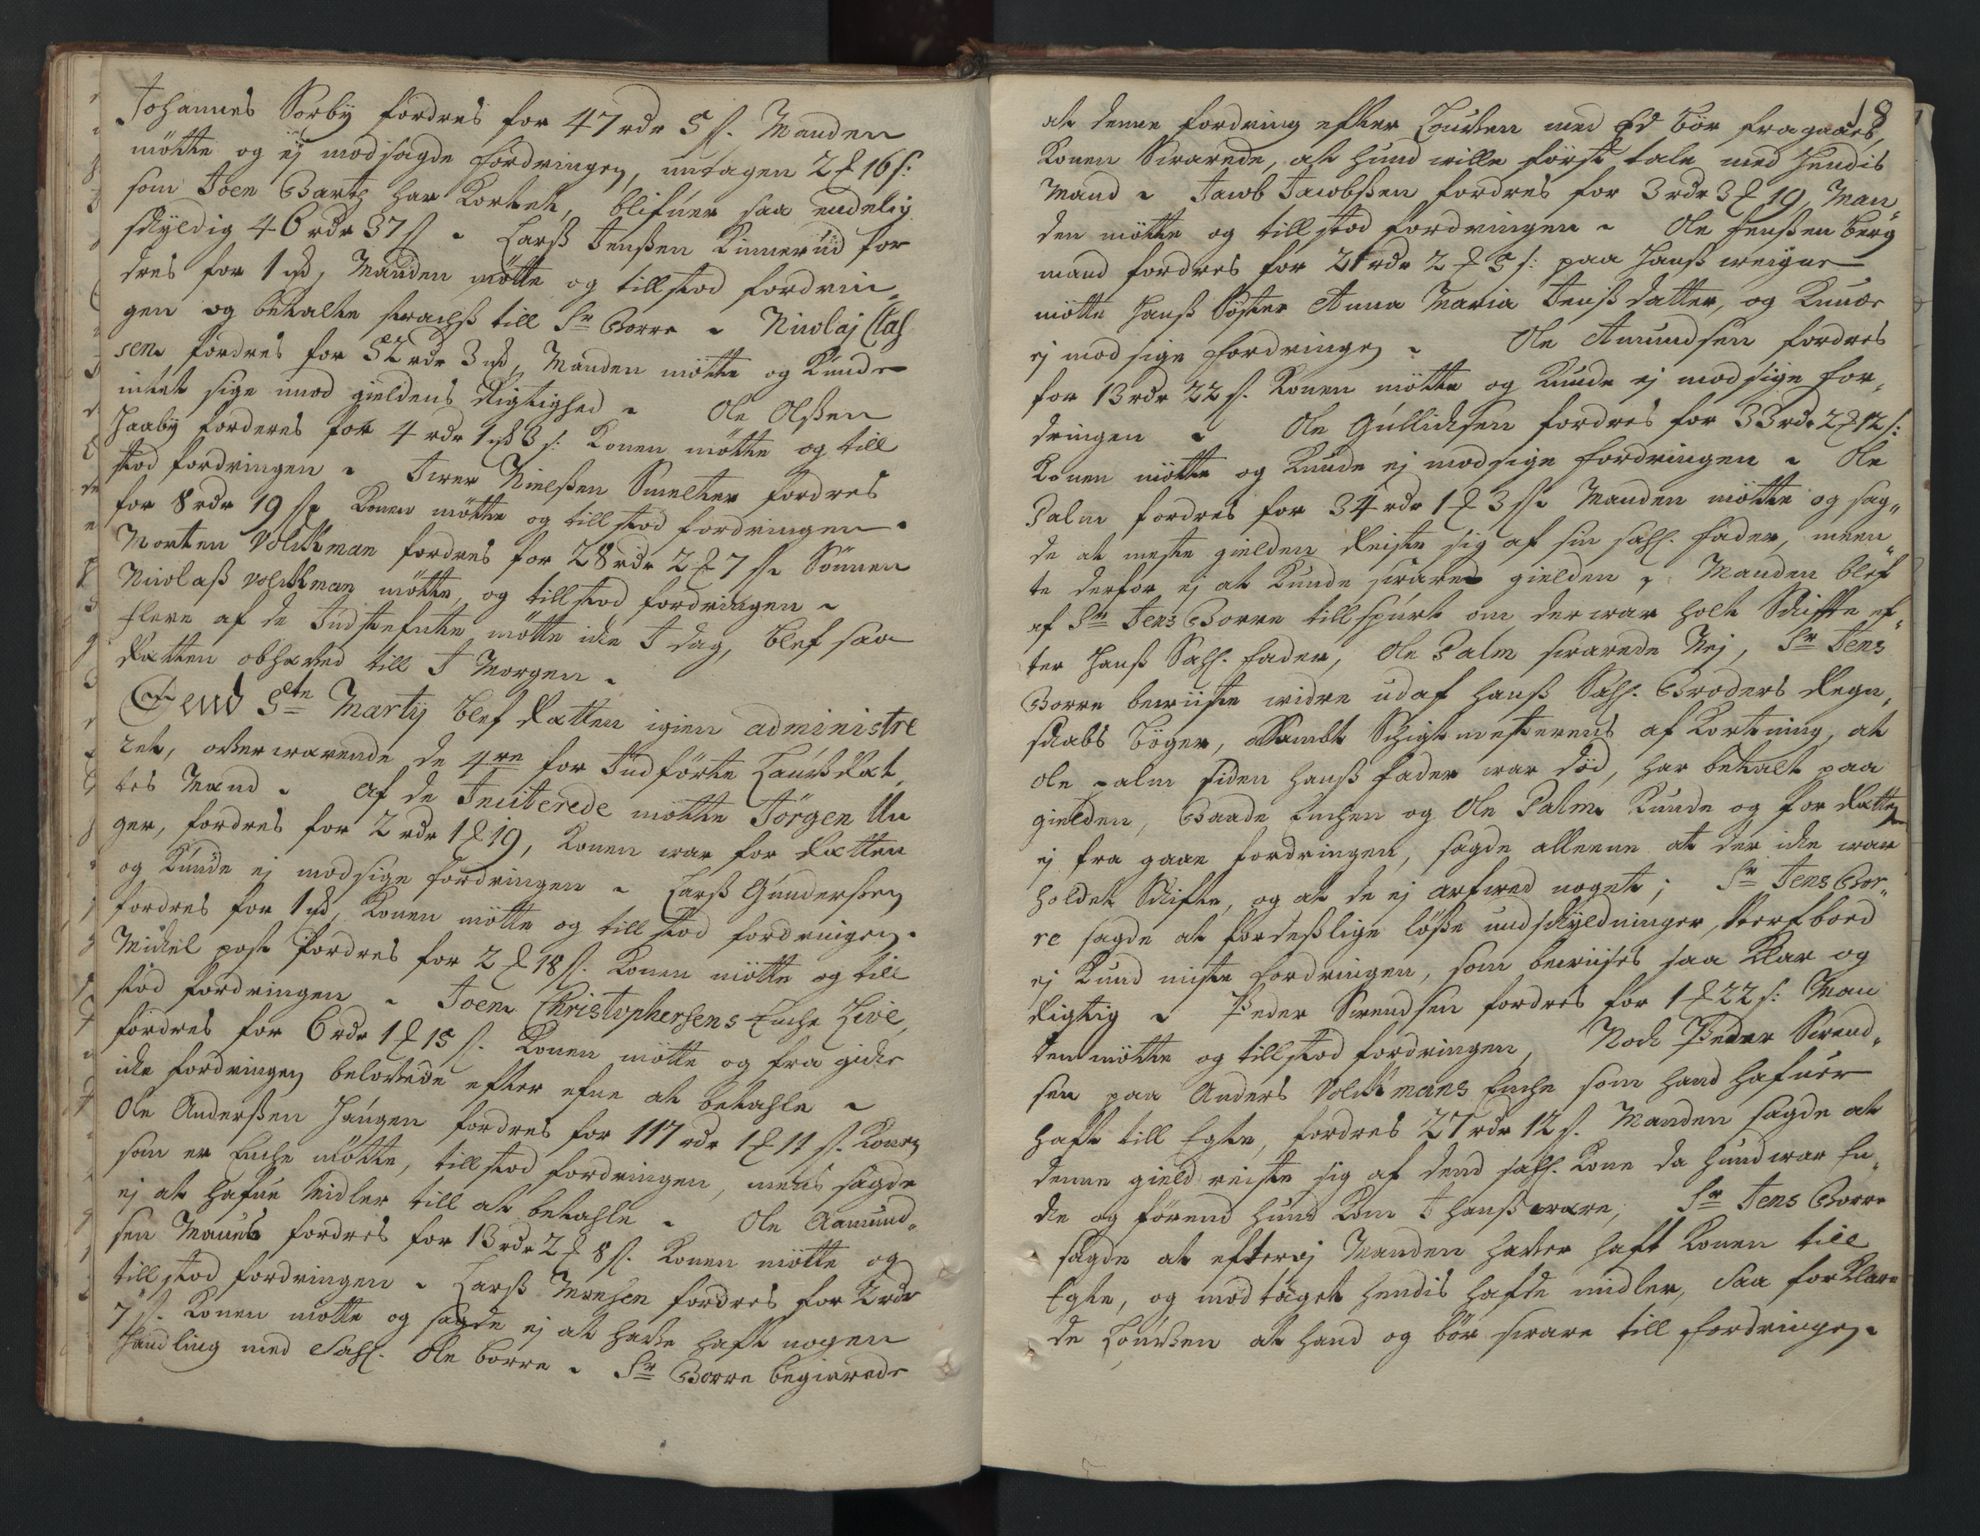 Johannes Sørby fordres for 47 rdr 5 s. Manden
mötte og ej modsagde fordringen, untagen 2 16 s:
som Joen Bartz har kortet, blifuer saa endelig
skyldig 46 rdr 37 s. Larss Jenssen Kinnerud for
dres for 1 , Manden mötte og tillstod fordrin,
gen og betalte strachss till Sr Borre. Nicolaj Clas
sen fordres for 52 rdr 3 , Manden mötte og kunde
intet sige imod gieldens Rigtighed. Ole Olssen
Haaby forderes for 4 rdr 1 3 s: Konen mötte og till
stod fordringen. Iwer Nielssen Smelter fordres
for 8 rdr 19 s Konen mötte og tillstod fordringen.
Morten Volckman fordres for 28 rdr 2 7 s. Sönnen
Nicolass Volckman mötte, og tillstod fordringen.
flere af de Indstefnte mötte icke I dag, blef saa
Rætten till I Morgen.
Dend 5te Martij blef Rætten igien administre
ret, owerwærende de 4re for Indförte Laug Ret,
tes Mænd. af de Insiterede mötte Jörgen Un
ger, fordres for 2 rdr 1 19, Konen war for Rætten
og kunde ej modsige fordringen. Larss Gunderssen
fordres for 1 , Konen mötte og tillstod fordringen.
Mickel post fordres for 2 18 s. Konen mötte og till
stod fordringen. Joen Christophersens Enche Live,
fordres for 6 rdr 1 15 s. Konen mötte og fra gick
icke fordringen belowede efter efne at betahle.
Ole Anderssen Haugen fordres for 117 rdr 1 11 s. Konen
som er Enche mötte, tillstod fordringen, mens sagde
ej at hafue Midler till at betahle. Ole Aamund,
sen fordres for 13 rdr 2 8 s. Konen mötte og
tillstod fordringen. Larss Monsen fordres for 2 rdr
7 s. Konen motte og sagde ej at hawe haft nogen
Handling med Sahl. Ole Borre. Sr Borre begierede
18
at denne fordring efter Louwen med Ed bör fragaaes,
Konen Swarede, at hund wille först tale med Hendis
Mand. Jacob Jacobssen fordres for 3 rdr 3 19, Man,
den mötte og tillstod fordringen. Ole Jenssen Berg
mand fordres for 21 rdr 2 5 s: paa Hanss weigne
mötte Hanss Söster Anna Maria Jenss datter, og kunde
ej modsige fordringen. Ole Amundsen fordres
for 13 rdr 22 s. Konen mötte og kunde ej modsige for,
dringen. Ole Gullichsen fordres for 33 rdr 2 12 s:
Konen mötte og kunde ej modsige fordringen. Ole
Palm fordres for 34 rdr 1 3 s. Manden mötte og sag,
de at meste gielden Reiste sig af sin sahl. fader, meen
te derfor ej at kunde sware gielden, Manden blef
af Sr Jens Borre tillspurt om der war holt Skiffte ef,
ter Hanss Sahl. fader, Ole Palm swarede Nej, Sr Jens
Borre bewiiste widre udaf hanss Sahl. Broders Regn,
skabs böger, samt Schigtmesterens af Kortning, at
Ole Palm siden hanss fader war död, har betalt paa
gielden, Baade Enchen og Ole Palm kunde og for Rætten
ej fra gaae fordringen, sagde alleene at der icke war
holdet Skifte, og at de ej arfwed noget; Sr Jens Bor,
re sagde at fordesslige lösse undskyldninger, Sterfboed
ej kund miste fordringen, som bewiises saa klar og
Rigtig. Peder Swendsen fordres for 1 22 s: Man
den mötte og tillstod fordringen, Noch Peder Swend,
sen paa Anders Volckmans Enche som hand hafuer
haft till Egte, fordres 27 rdr 12 s. Manden sagde at
denne gield reiste sig af dend sahl. Kone da hund war En,
cke og förend hund kom I hanss ware, Sr Jens Borre
sagde at efter Manden hawer haft Konen till
Egte, og modtaget hendis hafde midler, Saa forklare
de Louwen at hand og bör sware till fordringen.